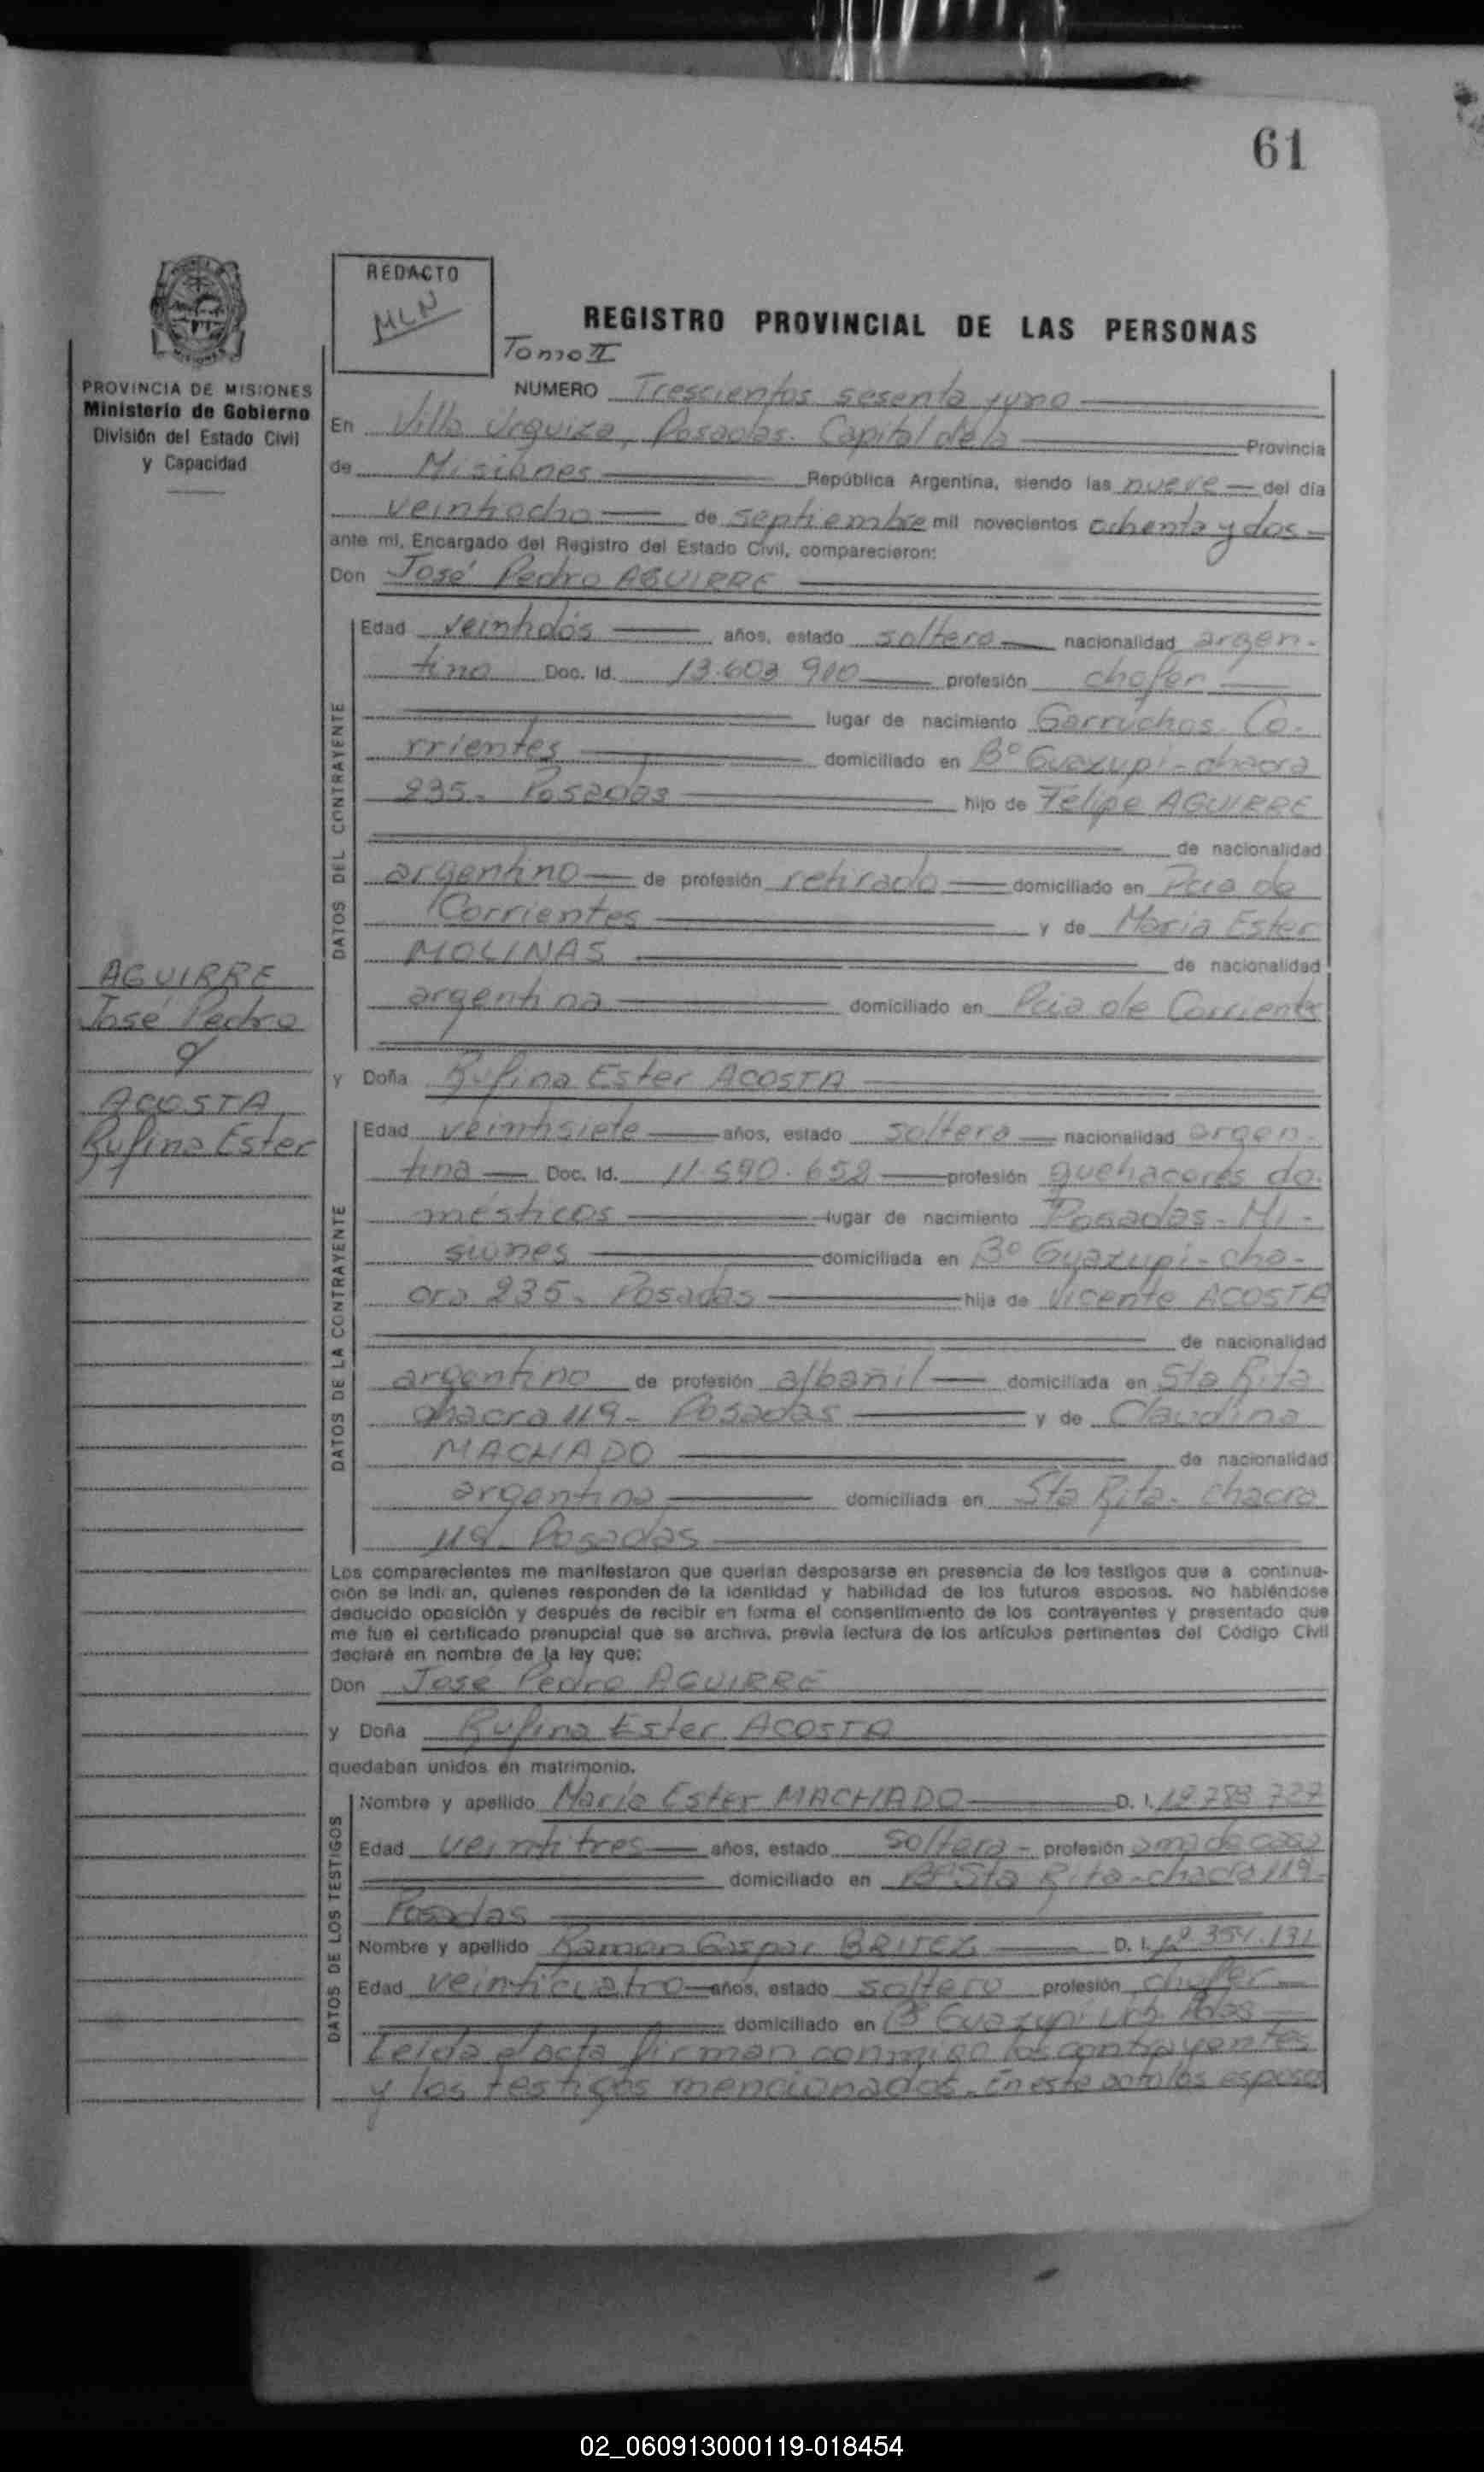 61
REDACTO
MLN
REGISTRO PROVINCIAL DE LAS PERSONAS
Tomo II
PROVINCIA DE MISIONES
Ministerio de Gobierno
División del Estado Civil
y Capacidad
NUMERO Trescientos sesenta y uno
En Villa Urquiza, Posadas. Capital de la Provincia
de Misiones República Argentina, siendo las nueve del día
veintiocho de septiembre mil novecientos ochenta y dos
ante mi, Encargado del Registro del Estado Civil, comparecieron:
Don José Pedro AGUIRRE
DATOS DEL CONTRAYENTE
Edad veintidós años, estado soltero nacionalidad argen-
tino Doc. Id. 13.603.900 profesión chofer
lugar de nacimiento Garruchos. Co-
rrientes domiciliado en Bº Guazupi - chacra
235. Posadas hijo de Felipe AGUIRRE
de nacionalidad
argentino de profesión retirado domiciliado en Pcia de
Corrientes y de Maria Ester
MOLINAS de nacionalidad
argentina domiciliado en Pcia de Corrientes
AGUIRRE
José Pedro
y
ACOSTA
Rufina Ester
y Doña Rufina Ester ACOSTA
DATOS DE LA CONTRAYENTE
Edad veintisiete años, estado soltera nacionalidad argen-
tina Doc. Id. 11.590.652 profesión quehaceres do-
mésticos lugar de nacimiento Posadas - Mi-
siones domiciliada en Bº Guazupi - cha-
cra 235. Posadas hija de Vicente ACOSTA
de nacionalidad
argentino de profesión albañil domiciliada en Sta Rita
chacra 119 - Posadas y de Claudina
MACHADO de nacionalidad
argentina domiciliada en Sta Rita - chacra
119 - Posadas
Los comparecientes me manifestaron que querian desposarse en presencia de los testigos que a continua-
ción se indi an, quienes responden de la identidad y habilidad de los futuros esposos. No habiéndose
deducido oposición y después de recibir en forma el consentimiento de los contrayentes y presentado que
me fue el certificado prenupcial que se archiva, previa lectura de los artículos pertinentes del Código Civil
declaré en nombre de la ley que:
Don José Pedro AGUIRRE
y Doña Rufina Ester ACOSTA
quedaban unidos en matrimonio.
DATOS DE LOS TESTIGOS
Nombre y apellido María Ester MACHADO D. I. 12.789.727
Edad veintitres años, estado soltera - profesión ama de casa
domiciliado en Bº Sta Rita - chacra 119 -
Posadas
Nombre y apellido Ramon Gaspar BRITEZ D. I. 12.354.131
Edad veinticuatro años, estado soltero profesión chofer
domiciliado en Bº Guazupi
Leida el acta firman conmigo los contrayentes
y los testigos mencionados. En este acto los esposos
02_060913000119-018454